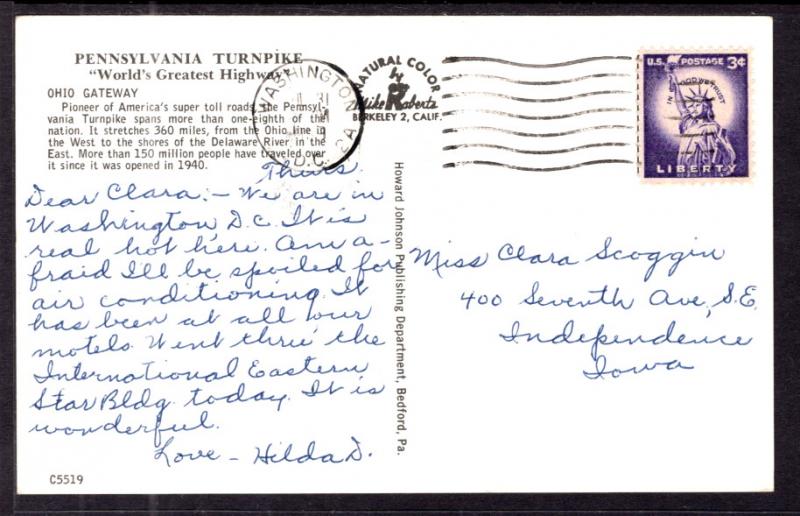 PENNSYLVANIA TURNPIKE
"World's Greatest Highway"
OHIO GATEWAY
Pioneer of America's super toll roads, the Pennsyl-
vania Turnpike spans more than one-eighth of the
nation. It stretches 360 miles, from the Ohio line in
the West to the shores of the Delaware River in the
East. More than 150 million people have traveled over
it since it was opened in 1940.
WASHINGTON
D.C.
NATURAL COLOR
by
Mike Roberts
BERKELEY 2, CALIF.
U.S. POSTAGE 3¢
IN GOD WE TRUST
LIBERTY
Thurs.
Dear Clara:- We are in
Washington, D.C. It is
real hot here. Am a-
fraid I'll be spoiled for
air conditioning. It
has been at all our
motels. Went thru' the
International Eastern
Star Bldg. today. It is
wonderful.
Love - Hilda D.
Howard Johnson Publishing Department, Bedford, Pa.
Miss Clara Scoggin
400 Seventh Ave, S.E.
Independence
Iowa
C5519